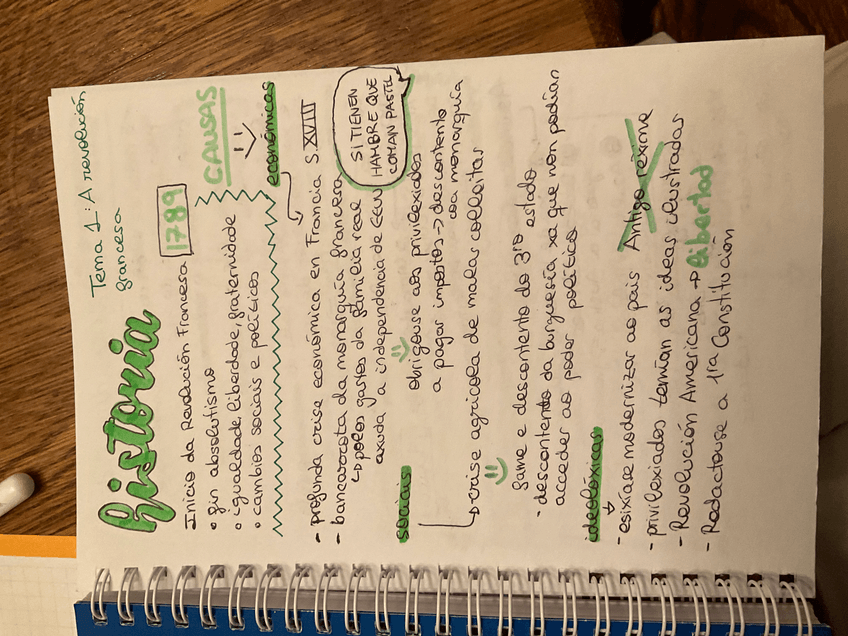 historia
Tema 1: A revolución
francesa
Inicio da Revolución Francesa 1789
• fin absolutismo
• igualdade, liberdade, fraternidade
• cambios sociais e políticos
CAUSAS
económicas
- profunda crise económica en Francia S.XVIII
- bancarrota da monarquía francesa
↳ polos gastos da familia real
axuda a independencia de EEUU
SI TIENEN
HAMBRE QUE
COMAN PASTEL
obrigouse aos privilexiados
a pagar impostos → descontento
coa monarquía
sociais
↳ crise agrícola de malas colleitas
fame e descontento do 3ro estado
- descontento da burguesía xa que non podían
acceder ao poder político
ideolóxicas
- esixíase modernizar ao país Antigo réxime
- privilexiados temían as ideas ilustradas
- Revolución Americana → libertad
- Redactouse a 1ra Constitución